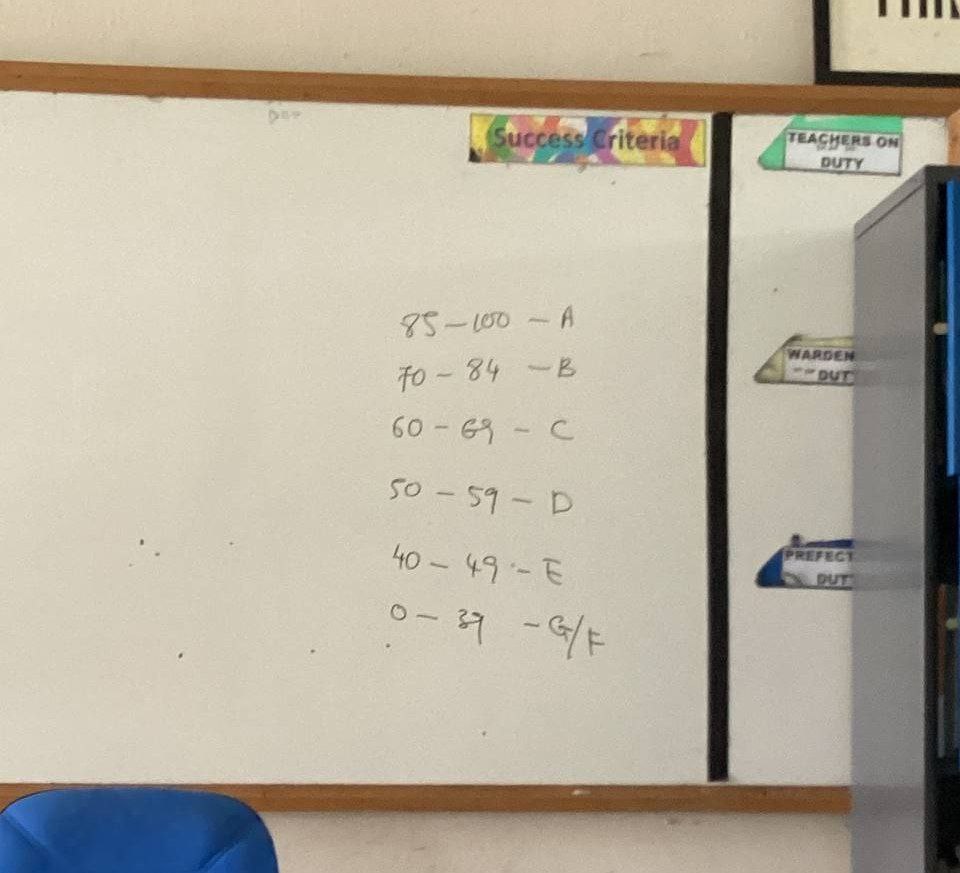 Success Criteria
TEACHERS ON
DUTY
85 – 100 – A
70 – 84 – B
60 – 69 – C
WARDEN
DUT
50 – 59 – D
40 – 49 – E
PREFECT
DUT
0 – 39 – G/F